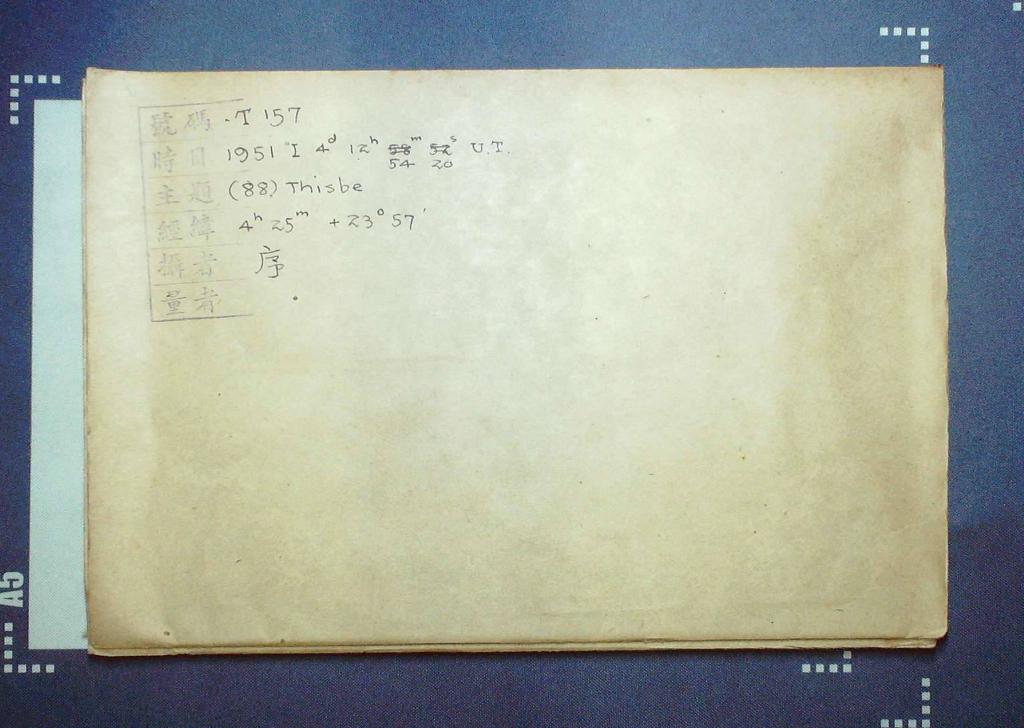 號碼 T 157
時日 1951 I 4ᵈ 12ʰ 58ᵐ 52ˢ U.T.
54 20
主題 (88) Thisbe
經緯 4ʰ 25ᵐ +23° 57'
攝者 序
量者
A5